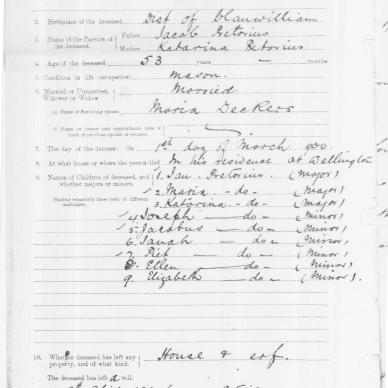 2. Birthplace of the deceased Dist of Clanwilliam
3. Name of the Parents of the deceased Father Jacob Pretorius
Mother Katarina Pretorius
4. Age of the deceased 53 years months
5. Condition in life (occupation) mason.
6. Married or Unmarried, Widower or Widow Married
(a) Name of Surviving spouse Maria Deckers
(b) Name or names and approximate date of death of previous spouse or spouses.
7. The day of the decease: On 1st day of March 900.
8. At what house or where the person died In his residence at Wellington
9. Names of Children of deceased, and whether majors or minors. 1. Jan Pretorius. (major)
2. Maria - do - (major)
(Stating separately those born of different marriages) 3. Katarina - do - (major)
4. Joseph — do — (minor)
5. Jacobus — do — (Minor)
6. — do — (minor)
7. Piet — do — (Minor)
8. Ellen — do — (Minor)
9. Elizabeth — do — (Minor).
10. Whether deceased has left any property, and of what kind. House & erf.
The deceased has left a will.